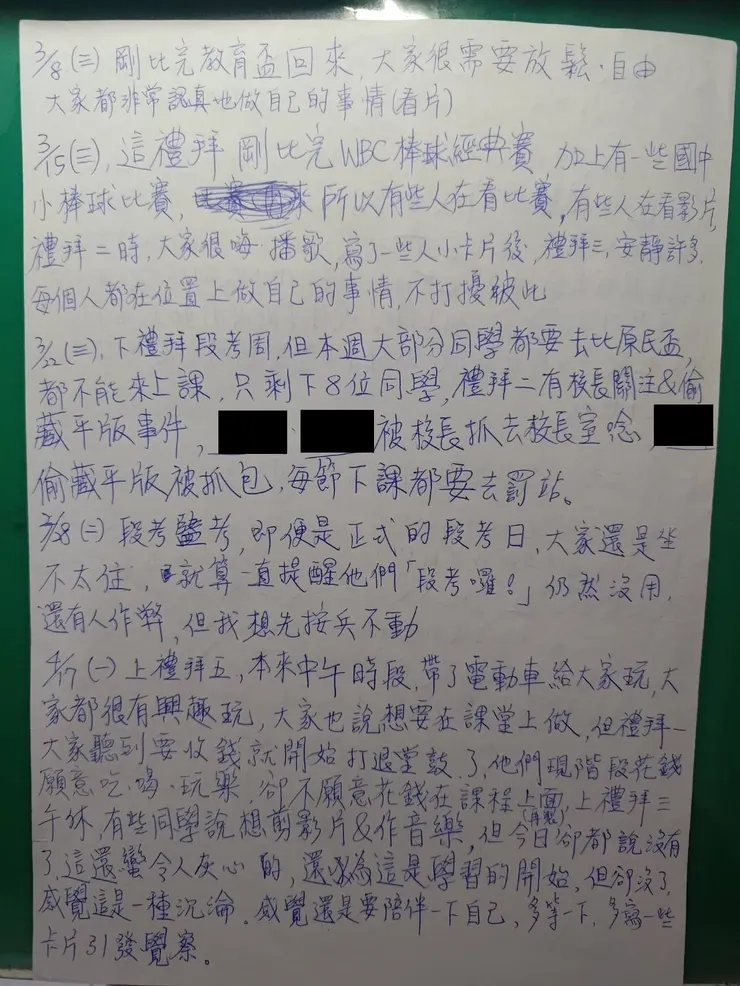 3/8(三) 剛比完教育盃回來,大家很需要放鬆.自由
大家都非常認真地做自己的事情(看片)
3/15(三), 這禮拜 剛比完WBC棒球經典賽 加上有一些國中
小棒球比賽, 來 所以有些人在看比賽, 有些人在看影片,
禮拜二時, 大家很嗨 播歌, 寫了一些人小卡片後, 禮拜三, 安靜許多,
每個人都在位置上做自己的事情, 不打擾彼此
3/22(三), 下禮拜段考周, 但本週大部分同學都要去比原民盃,
都不能來上課, 只剩下8位同學, 禮拜二有校長關注&偷
藏平版事件, 被校長抓去校長室唸,
偷藏平版被抓包, 每節下課都要去罰站。
3/28(二) 段考監考, 即便是正式的段考日, 大家還是坐
不太住, 就算一直提醒他們「段考囉!」仍然沒用,
還有人作弊, 但我想先按兵不動
4/17(一) 上禮拜五, 本來中午時段, 帶了電動車給大家玩, 大
家都很有興趣玩, 大家也說想要在課堂上做, 但禮拜一
大家聽到要收錢就開始打退堂鼓了, 他們現階段花錢
願意吃.喝.玩樂, 卻不願意花錢在課程上面, 上禮拜三
午休, 有些同學說想剪影片&作音樂, 但今日卻都說沒有
了, 這還蠻令人灰心的, 還以為這是學習的開始, 但卻沒了,
感覺這是一種沉淪. 感覺還是要陪伴一下自己, 多等一下, 多寫一些
卡片引發覺察。